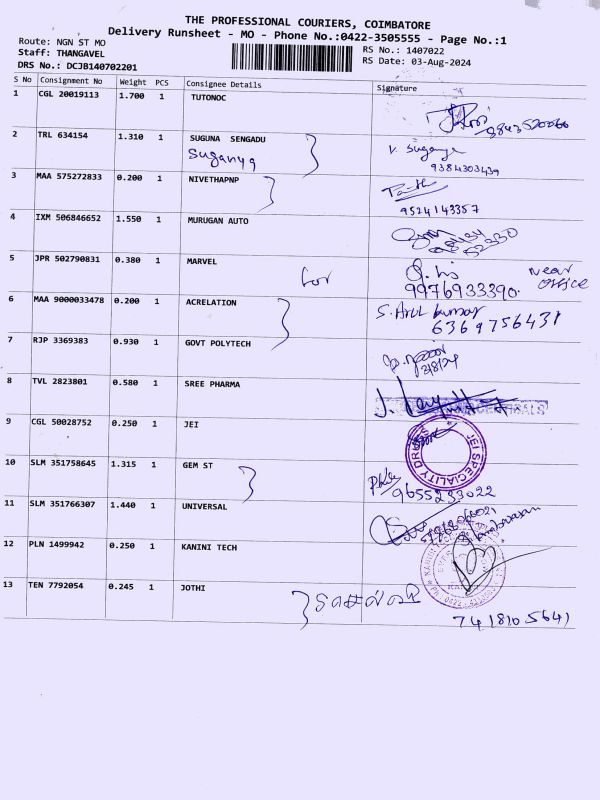 THE PROFESSIONAL COURIERS, COIMBATORE
Delivery Runsheet - MO - Phone No.:0422-3505555 - Page No.:1
Route: NGN ST MO
Staff: THANGAVEL
DRS No.: DCJB140702201
RS No.: 1407022
RS Date: 03-Aug-2024
S No Consignment No Weight PCS Consignee Details Signature
1 CGL 20019113 1.700 1 TUTONOC
2 TRL 634154 1.310 1 SUGUNA SENGADU
Suganya V. Suganya
9384303439
3 MAA 575272833 0.200 1 NIVETHAPNP
9524143357
4 IXM 506846652 1.550 1 MURUGAN AUTO
5 JPR 502790831 0.380 1 MARVEL
for near
9976933390. office
6 MAA 9000033478 0.200 1 ACRELATION S. Arul kumar
6369756431
7 RJP 3369383 0.930 1 GOVT POLYTECH
8 TVL 2823801 0.580 1 SREE PHARMA
9 CGL 50028752 0.250 1 JEI
JEI SPECIALITY DRUGS
10 SLM 351758645 1.315 1 GEM ST
9655233022
11 SLM 351766307 1.440 1 UNIVERSAL
12 PLN 1499942 0.250 1 KANINI TECH
13 TEN 7792054 0.245 1 JOTHI
7418105641